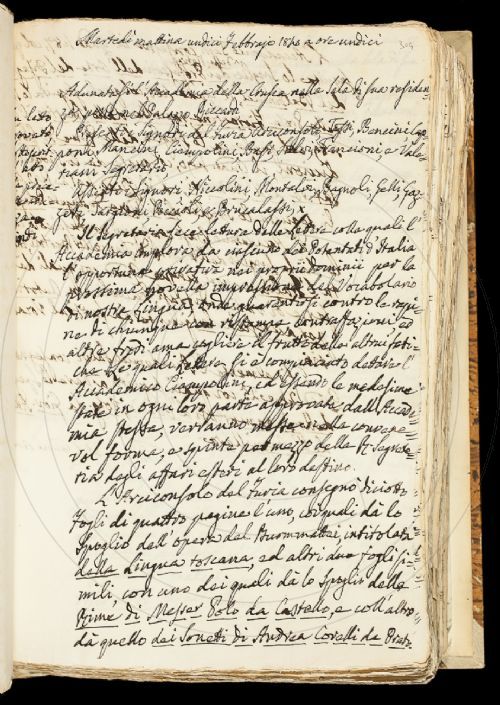 Martedì mattina undici Febbrajo 18 a ore undici
309
Adunatasi l'Accademia della Crusca nella Sala di sua residen-
za nel Palazzo Riccardi
Presenti i Signori del Furia Arciconsolo, Tassi, Bencini, Cap-
poni, Mancini, Ciampolini, Targioni, e Vale-
riani Segretario
Assenti i Signori Niccolini, Montalvi, Bagnoli, Gelli, Gaz-
zeri, Targioni, Puccioli e Brucalassi
Il Segretario fece lettura delle lettere colle quali l'
Accademia implora da ciascuno dei Potentati d'Italia
l'opportuna privativa nei proprj dominii per la
prossima novella impressione del Vocabolario
di nostra lingua, onde guarentirsi contro le rapi-
ne di chiunque con ristampe, contraffazioni, ed
altre frodi ama cogliere il frutto delle altrui fati-
che. Le quali lettere si è compiaciuto dettare l'
Accademico Ciampolini, ed essendo le medesime
state in ogni loro parte approvate dall'Accade-
mia stessa, verranno messe nella conven
vol forma, e spinte per mezzo della R. Segrete-
ria degli affari esteri al loro destino.
L'Arciconsolo del Furia consegnò diciotto
fogli di quattro pagine l'uno, coi quali dà lo
Spoglio dell'opera del Buommattei, intitolata
della Lingua toscana, ed altri due fogli si-
mili, con uno dei quali dà lo spoglio delle
Rime di Messer Polo da Castello, e coll'altro
dà quello dei Sonetti di Andrea Corelli da Prato